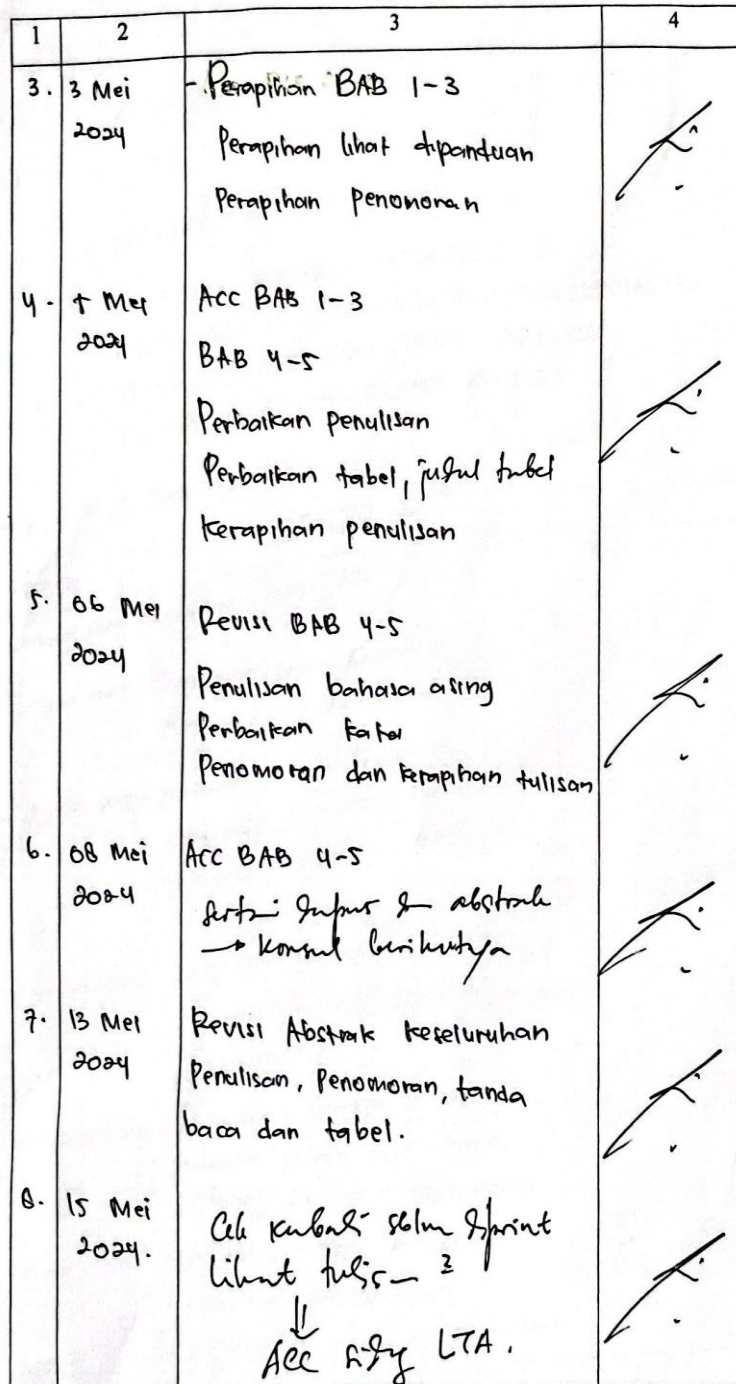 1 2 3 4
3. 3 Mei - Perapihan BAB 1-3
2024 Perapihan lihat dipanduan
Perapihan penomoran
4. Mei ACC BAB 1-3
2024 BAB 4-5
Perbaikan penulisan
Perbaikan tabel, judul tabel
Kerapihan penulisan
5. 06 Mei Revisi BAB 4-5
2024 Penulisan bahasa asing
Perbaikan
Penomoran dan kerapihan tulisan
6. 08 Mei ACC BAB 4-5
2024 abstrak
→ Konsul berikutnya
7. 13 Mei Revisi Abstrak keseluruhan
2024 Penulisan, Penomoran, tanda
baca dan tabel.
8. 15 Mei Cek kembali sblm diprint
2024. Lihat 2
⇓
ACC LTA.